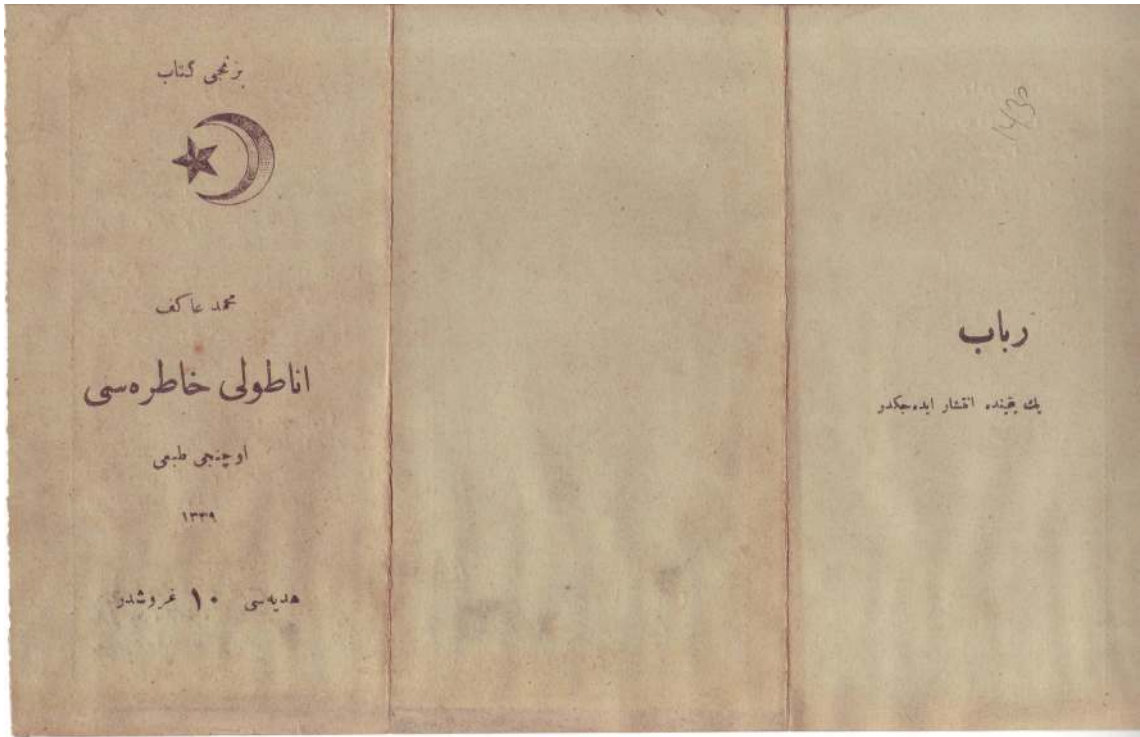 برنجی كتاب
محمد عاكف
اناطولی خاطره‌سی
اوچنجی طبعی
۱۳۳۹
هدیه‌سی ۱۰ غروشدر
رباب
پك یقینده انتشار ایده‌جكدر